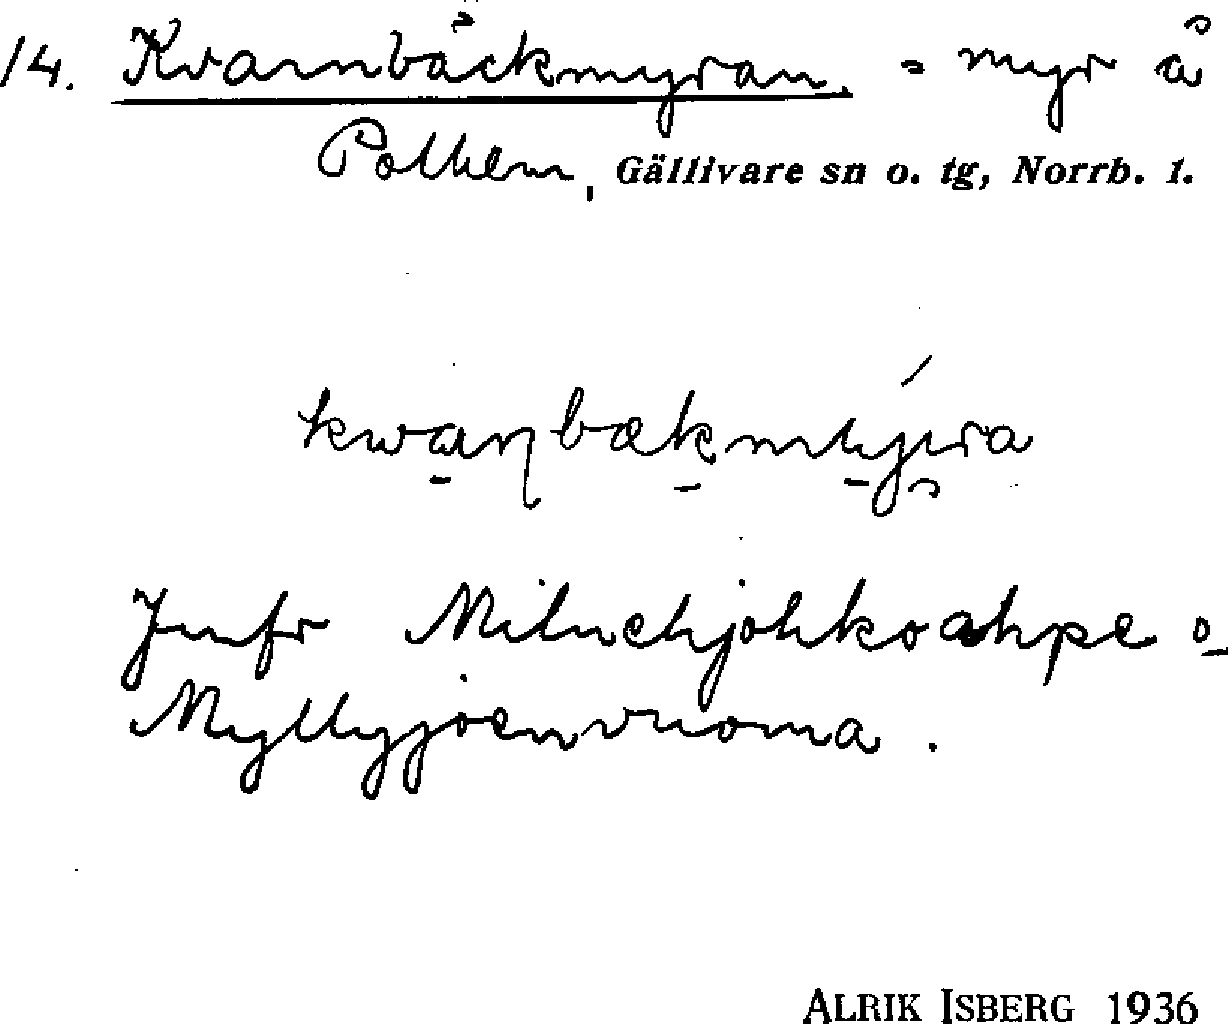 14. Kvarnbäckmyran. = myr å
Polhem, Gällivare sn o. tg, Norrb. l.
Jmfr Miluehjohkoahpe o
Myllyjoenvuoma.
ALRIK ISBERG 1936